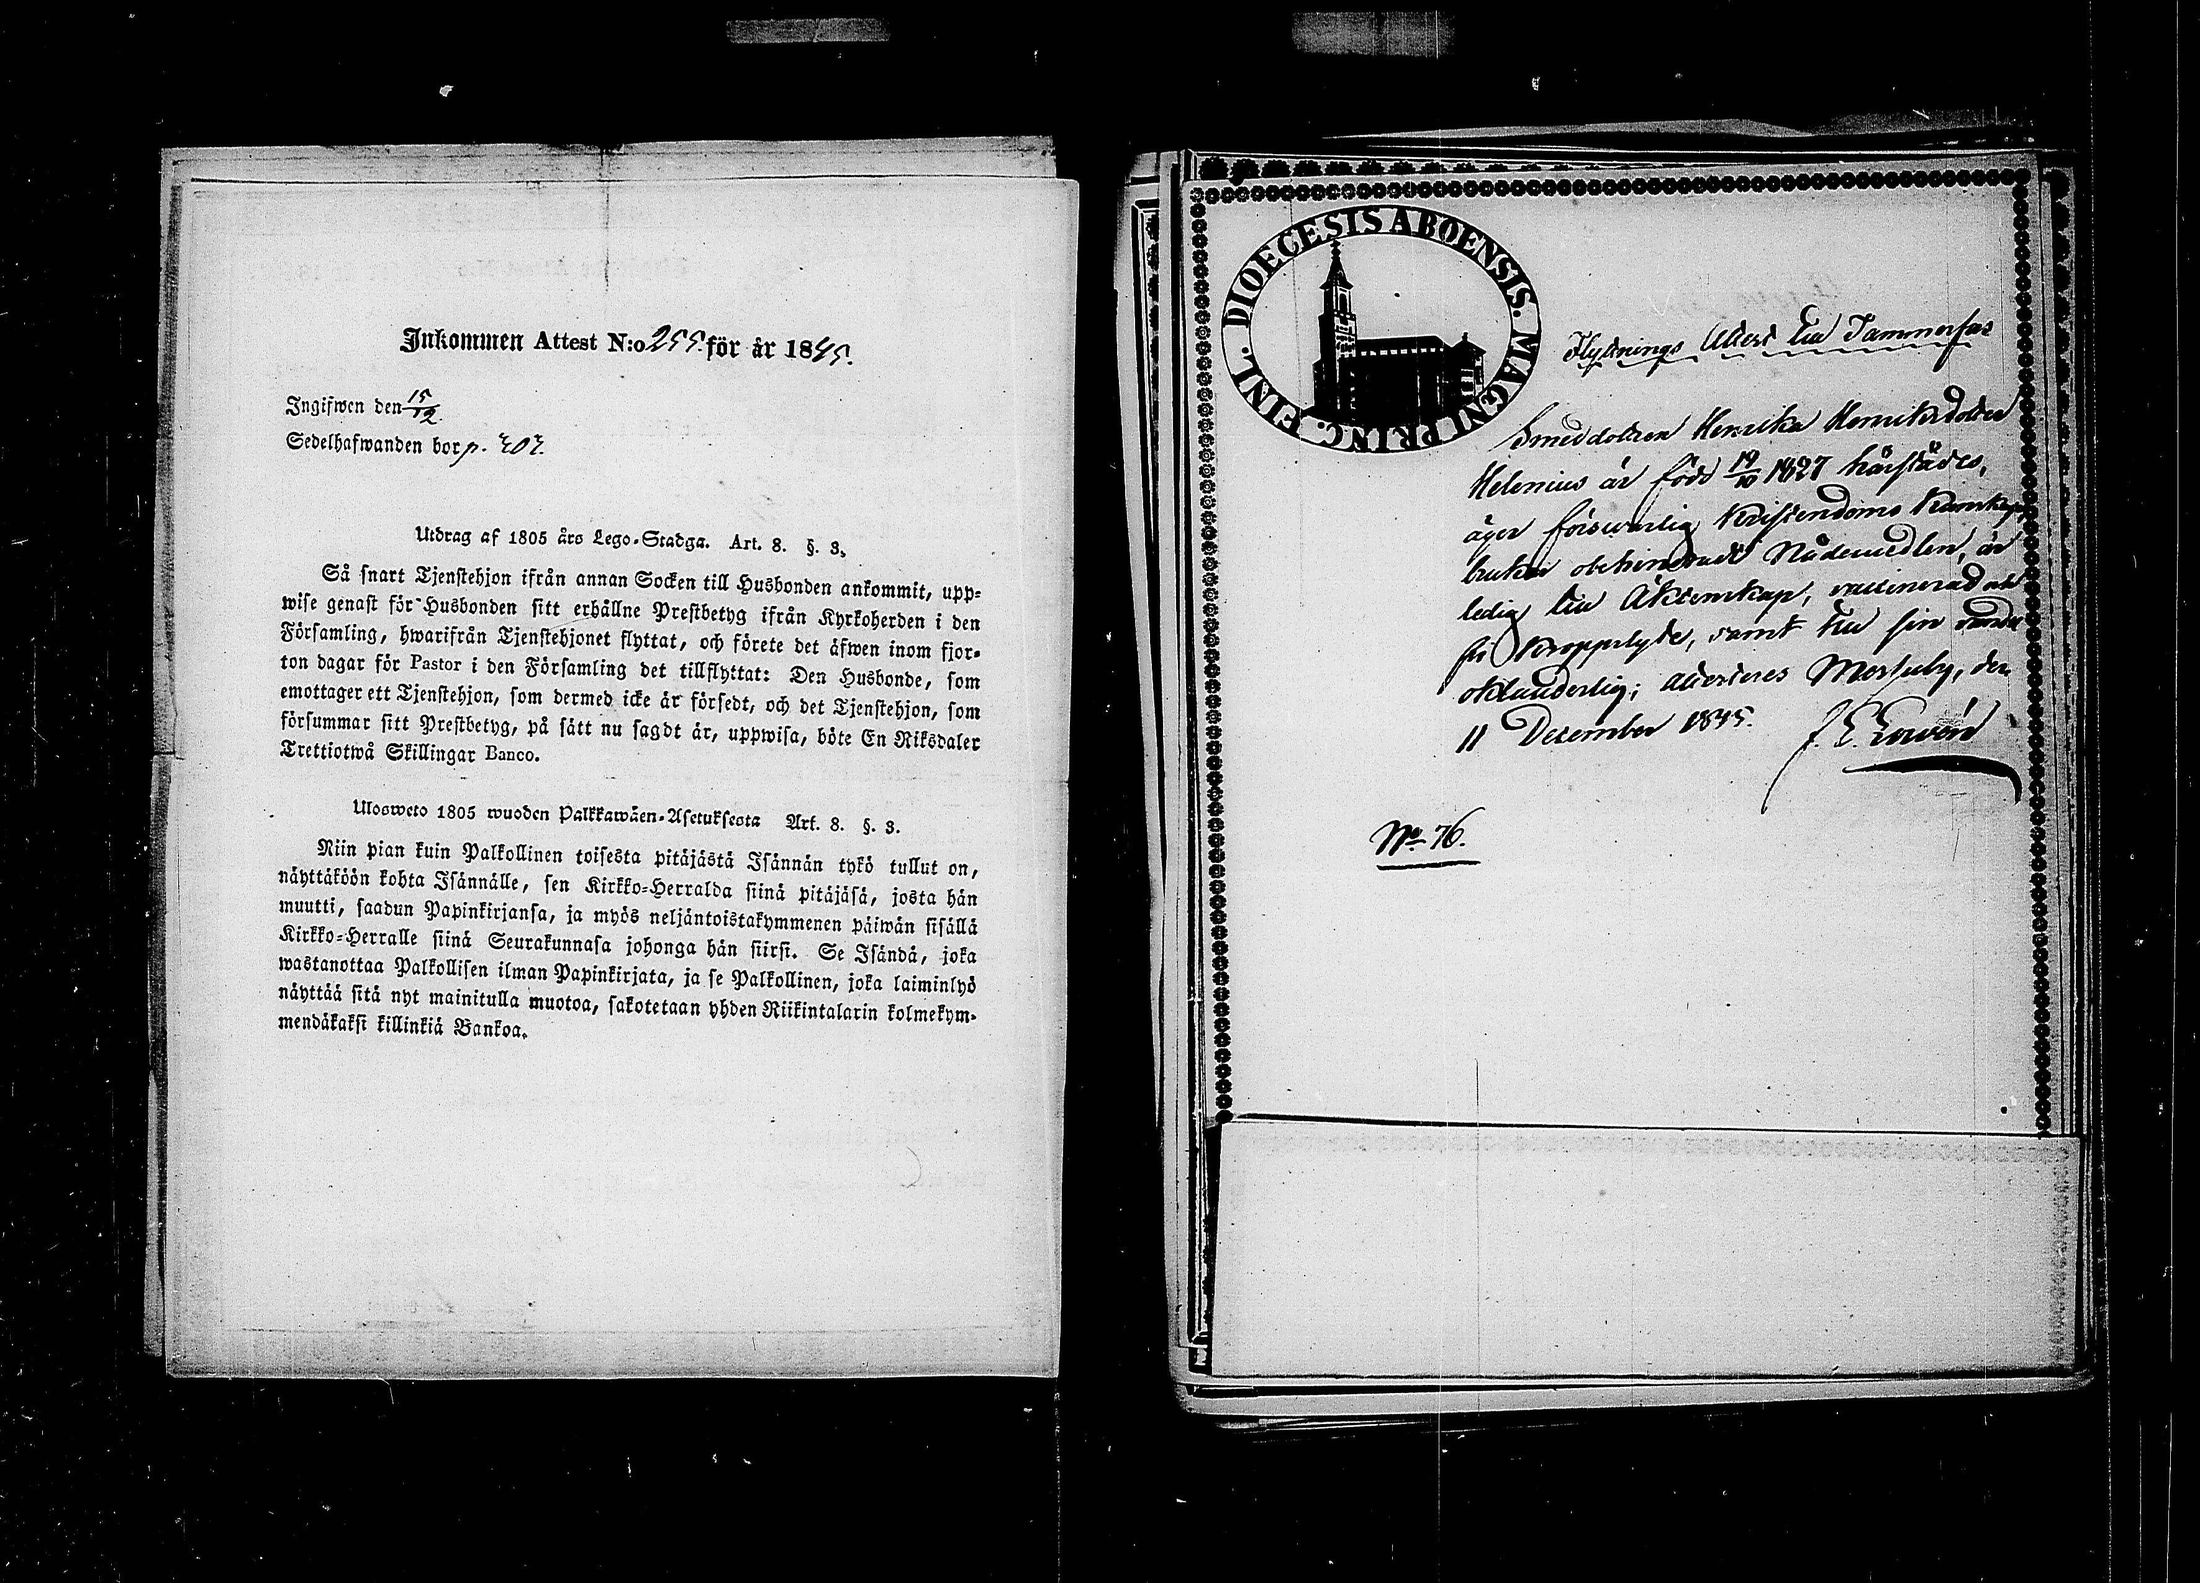 Inkommen Attest N:o 255. för år 1845.
Ingifwen den 15/12
Sedelhafwanden bor p. 707.
Utdrag af 1805 års Lego-Stadga. Art. 8. §. 3.
Så snart Tjenstehjon ifrån annan Socken till Husbonden ankommit, upp-
wise genast för Husbonden sitt erhållne Prestbetyg ifrån Kyrkoherden i den
Församling, hwarifrån Tjenstehjonet flyttat, och förete det äfwen inom fjor-
ton dagar för Pastor i den Församling det tillflyttat: Den Husbonde, som
emottager ett Tjenstehjon, som dermed icke är försedt, och det Tjenstehjon, som
försummar sitt Prestbetyg, på sätt nu sagdt är, uppwisa, böte En Riksdaler
Trettiotwå Skillingar Banco.
Ulosweto 1805 wuoden Palkkawäen-Asetuksesta Art. 8. §. 3.
Niin pian kuin Palkollinen toisesta pitäjästä Isännän tykö tullut on,
näyttäköön kohta Isännälle, sen Kirkko-Herralda siinä pitäjäsä, josta hän
muutti, saadun Papinkirjansa, ja myös neljäntoistakymmenen päiwän sisällä
Kirkko-Herralle siinä Seurakunnasa johonga hän siirsi. Se Isändä, joka
wastanottaa Palkollisen ilman Papinkirjata, ja se Palkollinen, joka laiminlyö
näyttää sitä nyt mainitulla muotoa, sakotetaan yhden Riikintalarin kolmekym-
mendäkaksi killinkiä Bankoa.
DIOECESIS ABOENSIS. MAGNI PRINC. FINL.
Flyttnings Attest till Tammerfors
Smeddottren Henrika Henriksdotter
Helenius är född 19/10 1827 härstädes,
äger förswarlig Kristendoms Kunskap,
brukar obehindradt Nådemedlen, är
ledig till Äktenskap, vaccinerad och
fri Kroppslyte, samt till sin vandel
oklanderlig; attesteras Mouhijärvi, den
11 December 1845.
No 76.